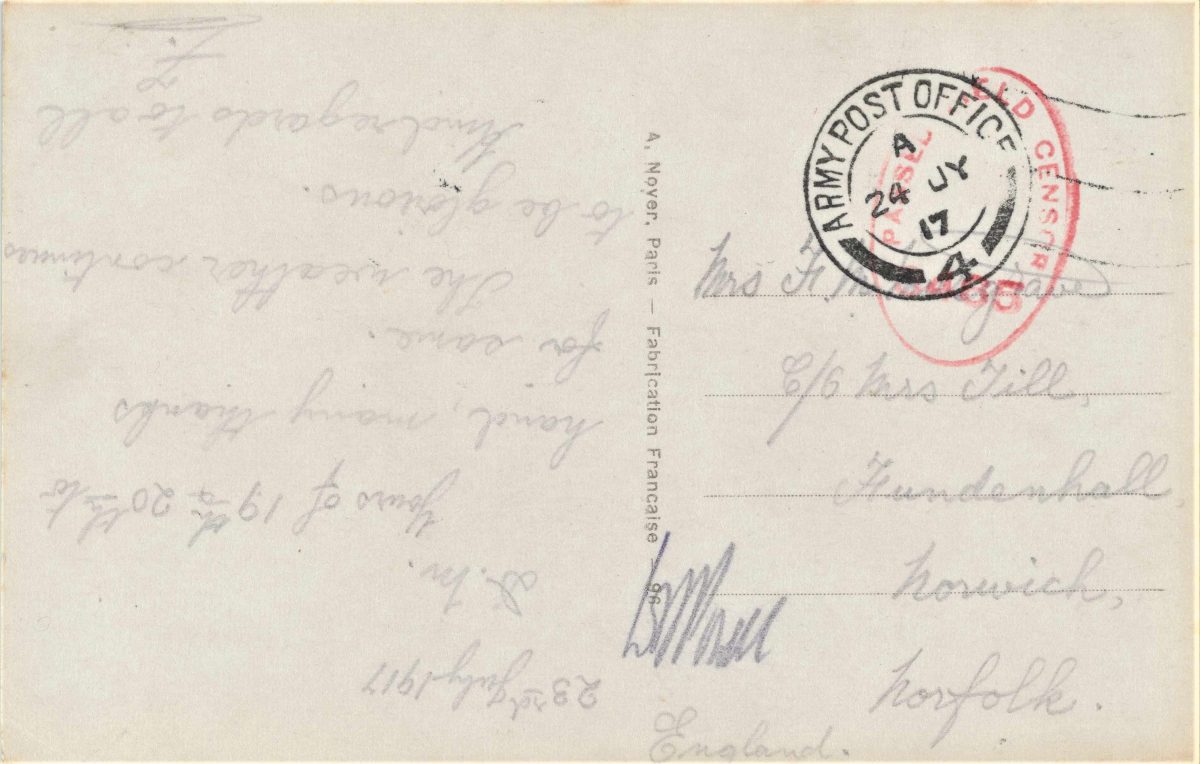 23rd July 1917
D. M.
Yours of 19th & 20th to
hand, many thanks
for same.
The weather continues
to be glorious.
Kind regards to all
F.
A. Noyer, Paris — Fabrication Française — 96
ARMY POST OFFICE
A
24 JY
17
4
FIELD CENSOR
PASSED
Mrs F. M.
C/o Mrs Till,
Fundenhall,
Norwich,
Norfolk.
England.